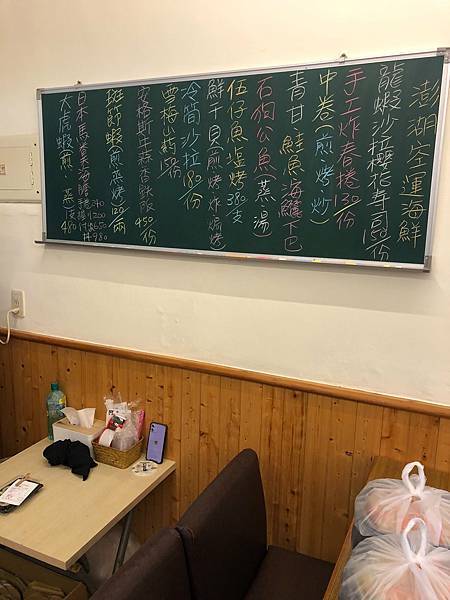 澎湖空運海鮮
龍蝦沙拉櫻花壽司150份
手工炸春捲130/份
中卷(煎.烤.炒)
青甘 鮭魚 海鱺下巴
石狗公魚(蒸.湯)
伍仔魚塩烤380支
鮮干貝(煎.烤.炸.焗烤)
冷筍沙拉180/份
雪梅山葯150份
安格斯牛 450份
斑節蝦煎.蒸.烤120/兩
日本馬糞海膽
大虎蝦(煎. 蒸